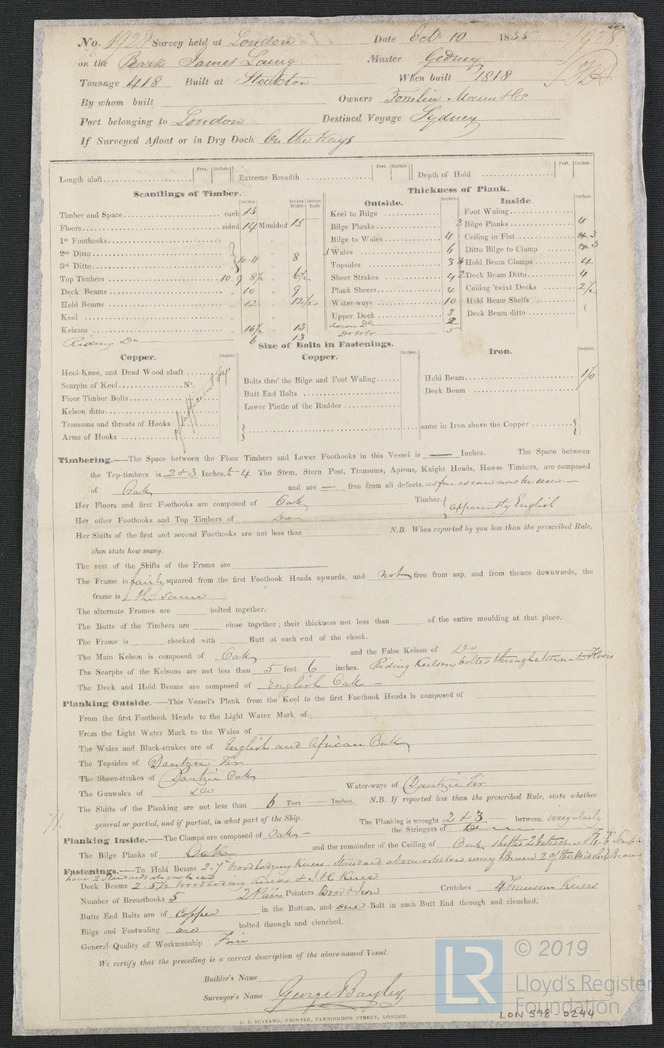 No. 1928 Survey held at London Date Oct 10 1835
on the Bark James Laing Master Gedney
Tonnage 418 Built at Stockton When built 1818
By whom built Owners Tomlin Mann & Co
Port belonging to London Destined Voyage Sydney
If Surveyed Afloat or in Dry Dock On the Ways
Length aloft Feet. Inches. Extreme Breadth Feet. Inches. Depth of Hold Feet. Inches.
Scantlings of Timber.
Timber and Space each
Floors sided 14 Moulded 15
1st Foothooks
2nd Ditto 10-11 8
3rd Ditto
Top Timbers
Deck Beams 10 9
Hold Beams 12
Keel
Kelsons 13
Riding Do 6 13
Thickness of Plank.
Outside.
Keel to Bilge
Bilge Planks 3
Bilge to Wales 4
Wales 6
Topsides 3
Sheer Strakes 4
Plank Sheers 4
Water-ways 10
Upper Deck 3
Inside
Foot Waling
Bilge Planks 4
Ceiling in Flat 3
Ditto Bilge to Clamp 3
Hold Beam Clamps 4
Deck Beam Ditto 4
Ceiling 'twixt Decks 2½
Hold Beam Shelfs
Deck Beam ditto
Size of Bolts in Fastenings.
Copper.
Heel-Knee, and Dead Wood abaft
Scarphs of Keel No.
Floor Timber Bolts
Kelson ditto
Transoms and throats of Hooks
Arms of Hooks
Copper.
Bolts thro' the Bilge and Foot Waling
Butt End Bolts
Lower Pintle of the Rudder
same in Iron above the Copper
Iron.
Hold Beam
Deck Beam
Timbering.—The Space between the Floor Timbers and Lower Foothooks in this Vessel is — Inches. The Space between
the Top-timbers is 2 & 3 Inches. to 4 The Stem, Stern Post, Transoms, Aprons, Knight Heads, Hawse Timbers, are composed
of Oak and are — free from all defects. as far as can now be seen —
Her Floors and first Foothooks are composed of Oak Timber. apparently English
Her other Foothooks and Top Timbers of Do
Her Shifts of the first and second Foothooks are not less than N.B. When reported by you less than the prescribed Rule,
then state how many.
The rest of the Shifts of the Frame are
The Frame is fairly squared from the first Foothook Heads upwards, and not free from sap, and from thence downwards, the
frame is the same
The alternate Frames are bolted together.
The Butts of the Timbers are close together; their thickness not less than of the entire moulding at that place.
The Frame is chocked with Butt at each end of the chock.
The Main Kelson is composed of Oak and the False Kelson of Do
The Scarphs of the Kelsons are not less than 5 feet 6 inches. Riding Keelson bolted through alternate Floors
The Deck and Hold Beams are composed of English Oak —
Planking Outside.—This Vessel's Plank from the Keel to the first Foothook Heads is composed of
From the first Foothook Heads to the Light Water Mark of
From the Light Water Mark to the Wales of
The Wales and Black-strakes are of English and African Oak
The Topsides of Dantzic Fir
The Sheer-strakes of Dantzic Oak Water-ways of Dantzic Fir
The Gunwales of Do
The Shifts of the Planking are not less than 6 Feet — Inches. N.B. If reported less than the prescribed Rule, state whether
general or partial, and if partial, in what part of the Ship The Planking is wrought 2 & 3 between. irregularly
Planking Inside.—The Clamps are composed of Oak — the Stringers of Do
The Bilge Planks of Oak and the remainder of the Ceiling of Oak
Fastenings.—To Hold Beams
Deck Beams
Number of Breasthooks 5 Pointers Crutches 4 Transom Knees
Butts End Bolts are of Copper in the Bottom, and one Bolt in each Butt End through and clenched.
Bilge and Footwaling are bolted through and clenched.
General Quality of Workmanship Fair
We certify that the preceding is a correct description of the above-named Vessel.
Builder's Name
Surveyor's Name George Bayley
C. F. SEYFANG, PRINTER, FARRINGDON STREET, LONDON.
LR © 2019
Lloyd's Register
Foundation
LON 598-0244